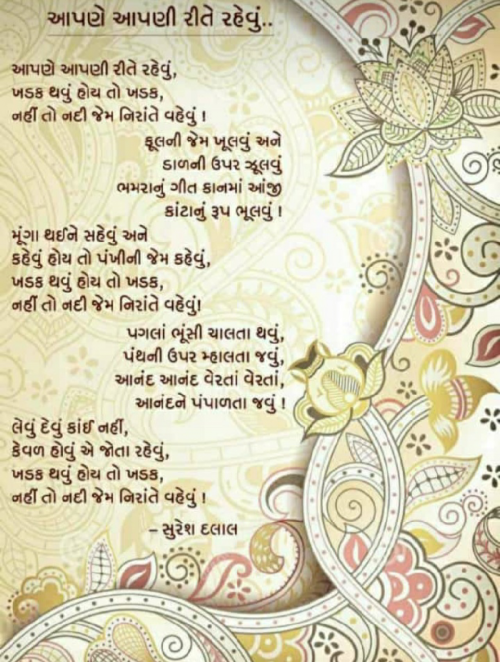 આપણે આપણી રીતે રહેવું..
આપણે આપણી રીતે રહેવું,
ખડક થવું હોય તો ખડક,
નહીં તો નદી જેમ નિરાંતે વહેવું !
ફૂલની જેમ ખૂલવું અને
ડાળની ઉપર ઝૂલવું
ભમરાનું ગીત કાનમાં આંજી
કાંટાનું રૂપ ભૂલવું !
મૂંગા થઈને સહેવું અને
કહેવું હોય તો પંખીની જેમ કહેવું,
ખડક થવું હોય તો ખડક,
નહીં તો નદી જેમ નિરાંતે વહેવું!
પગલાં ભૂંસી ચાલતા થવું,
પંથની ઉપર મ્હાલતા જવું,
આનંદ આનંદ વેરતાં વેરતાં,
આનંદને પંપાળતા જવું !
લેવું દેવું કાંઈ નહીં,
કેવળ હોવું એ જોતા રહેવું,
ખડક થવું હોય તો ખડક,
નહીં તો નદી જેમ નિરાંતે વહેવું !
– સુરેશ દલાલ